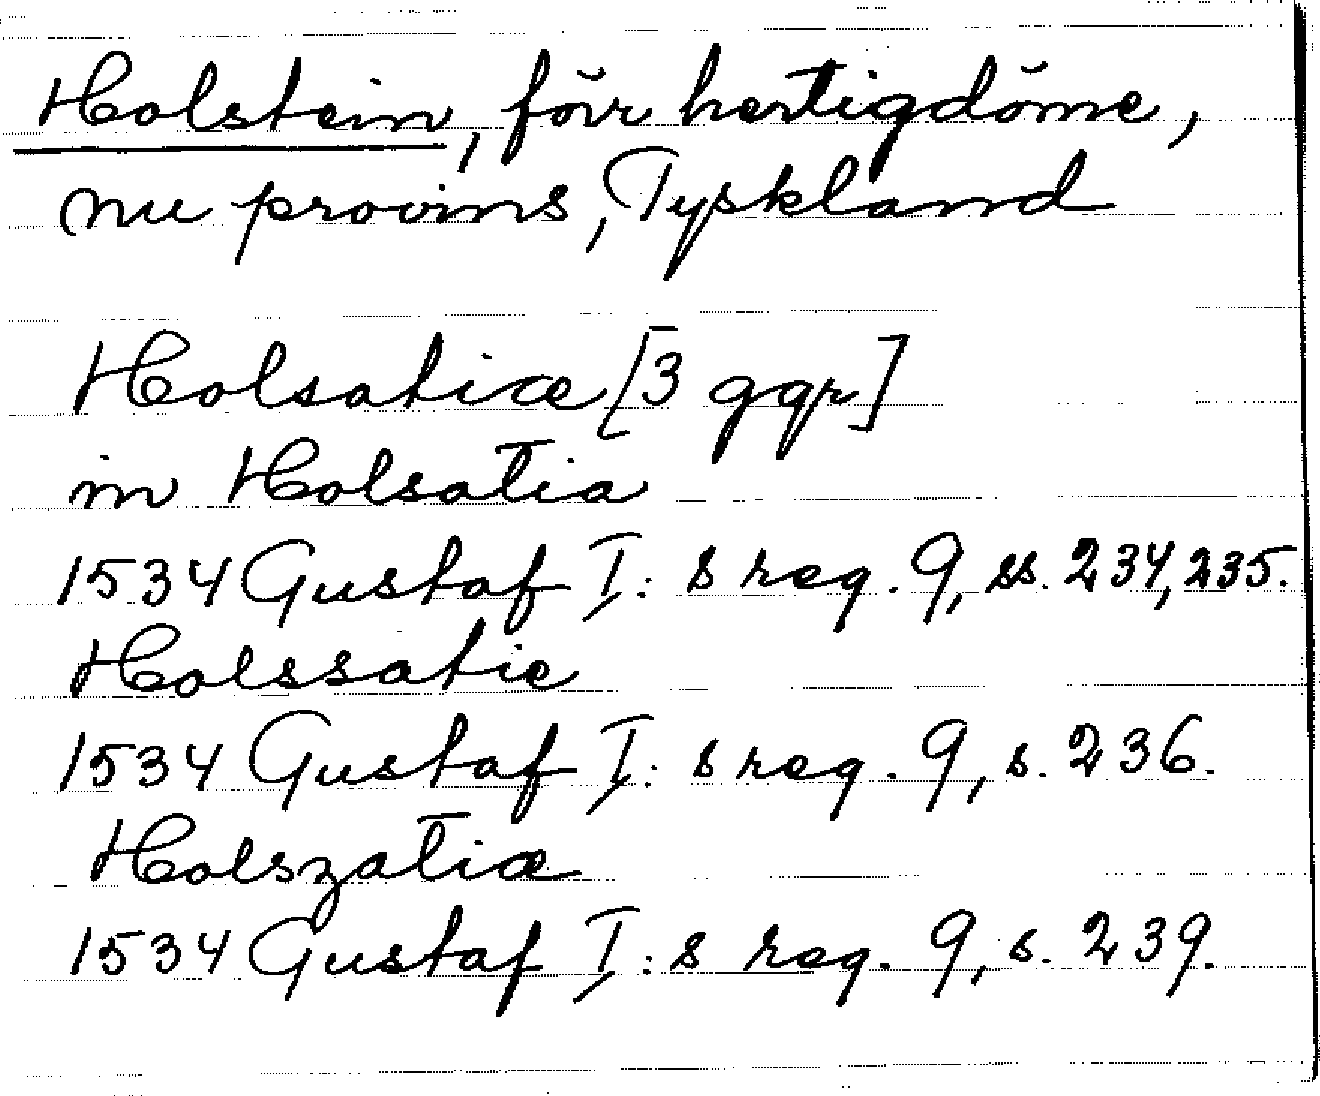 Holstein, förr hertigdöme,
nu provins, Tyskland
Holsatiæ [3 ggr]
in Holsatia
1534 Gustaf I: s reg. 9, ss. 234, 235.
Holssatie
1534 Gustaf I: s reg. 9, s. 236.
Holszatiæ
1534 Gustaf I: s reg. 9, s. 239.